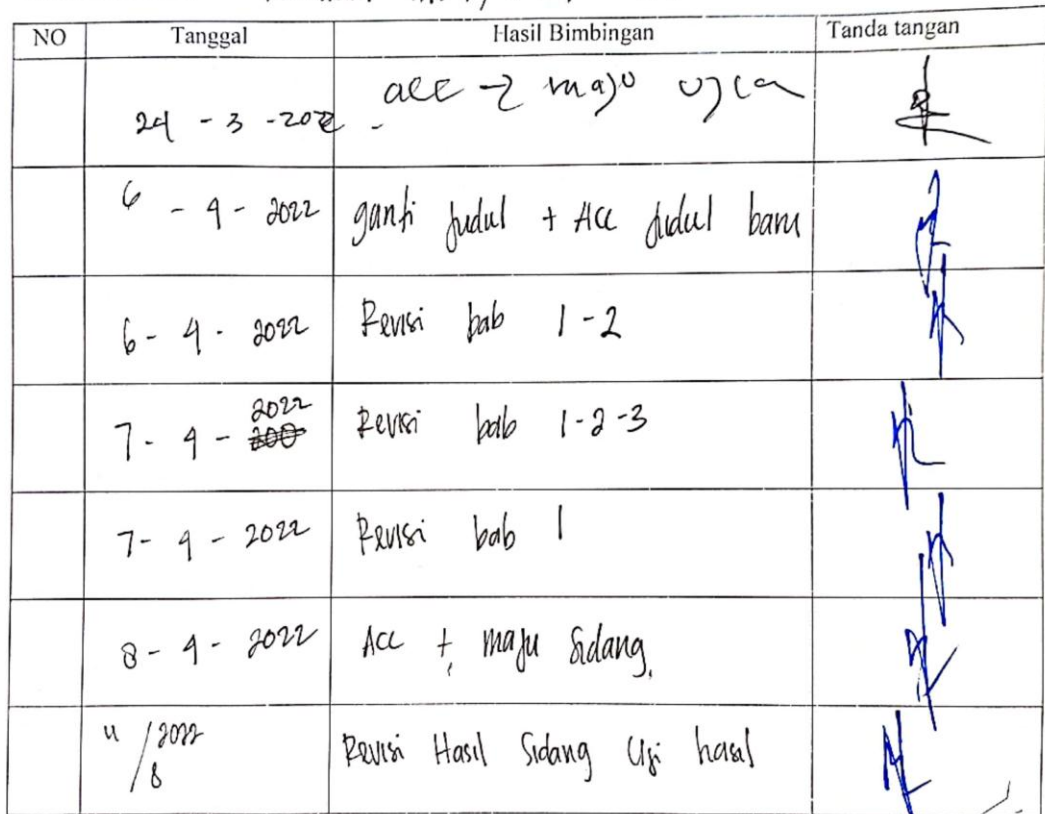 NO Tanggal Hasil Bimbingan Tanda tangan
24 - 3 - 2022 - acc → maju ujian
6 - 4 - 2022 ganti judul + Acc judul baru
6 - 4 - 2022 Revisi bab 1-2
2022
7 - 4 - 200 Revisi bab 1-2-3
7 - 4 - 2022 Revisi bab 1
8 - 4 - 2022 Acc + maju Sidang
/ 2022 Revisi Hasil Sidang Uji hasil
8